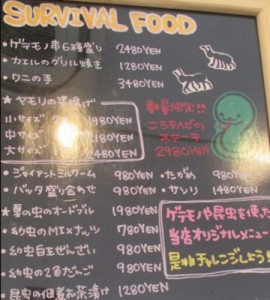 SURVIVAL FOOD
・ゲテモノ串6種盛り 2480YEN
・カエルのグリル焼き 1280YEN
・ワニの手 3480YEN
★ヤモリの
小サイズ 980YEN
中サイズ 1980YEN
大サイズ 2480YEN
数量限定!!
ニシキヘビの
ステーキ
2980YEN
・ジャイアントミルワーム 980YEN
・バッタ盛り合わせ 980YEN
・たがめ 980YEN
・サソリ 1480YEN
★夏の虫のオードブル 1980YEN
・幼虫のMIXナッツ 780YEN
・幼虫白玉ぜんざい 980YEN
・幼虫の2色だんご 980YEN
・昆虫の佃煮お茶漬け 1280YEN
ゲテモノや昆虫を使った
当店オリジナルメニュー
是非チャレンジしよう!!